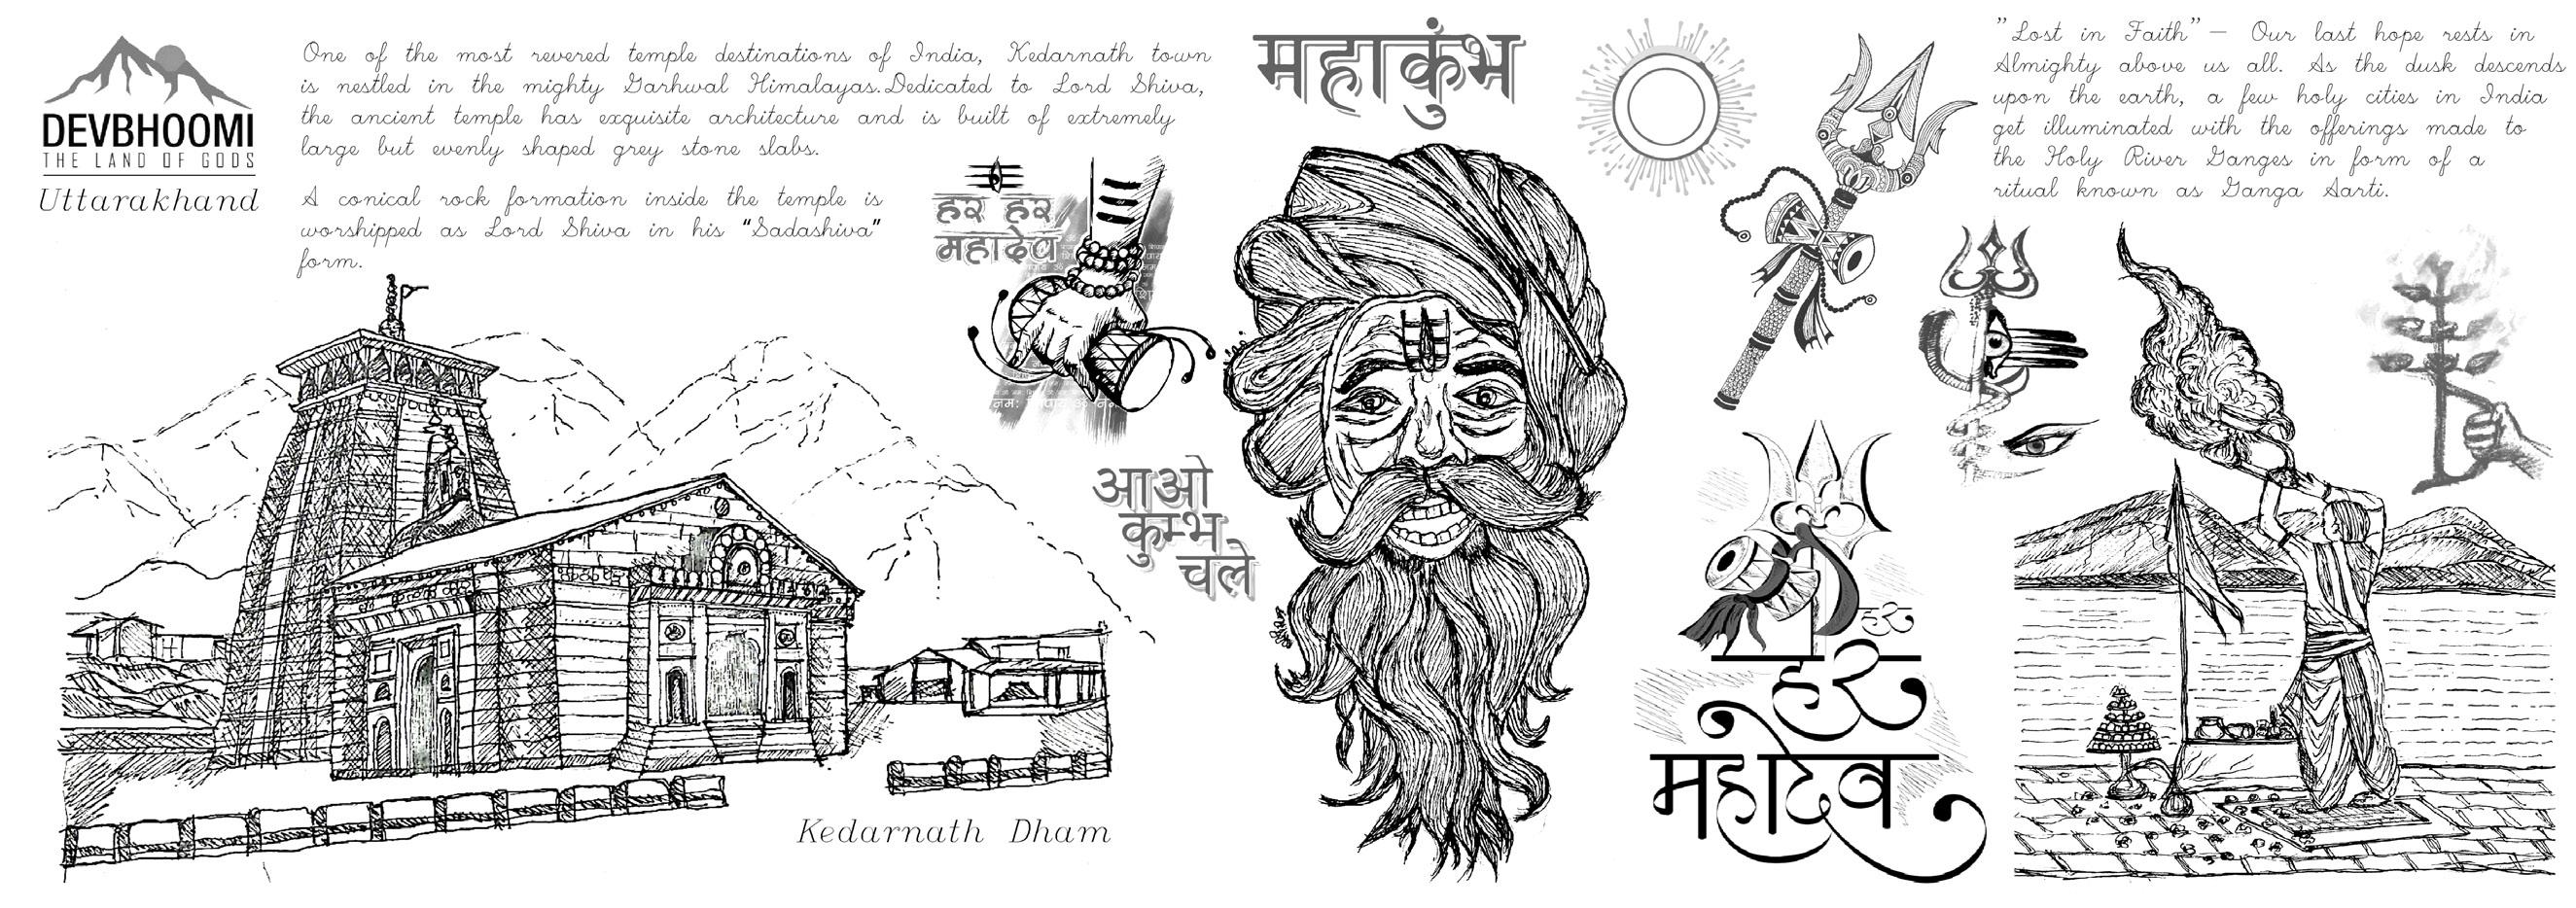 DEVBHOOMI
THE LAND OF GODS
Uttarakhand
One of the most revered temple destinations of India, Kedarnath town
is nestled in the mighty Garhwal Himalayas.Dedicated to Lord Shiva,
the ancient temple has exquisite architecture and is built of extremely
large but evenly shaped grey stone slabs.
A conical rock formation inside the temple is
worshipped as Lord Shiva in his “Sadashiva”
form.
Kedarnath Dham
हर हर
महादेव
महाकुंभ
आओ
कुम्भ
चले
हर
हर
महादेव
"Lost in Faith" – Our last hope rests in
Almighty above us all. As the dusk descends
upon the earth, a few holy cities in India
get illuminated with the offerings made to
the Holy River Ganges in form of a
ritual known as Ganga Aarti.